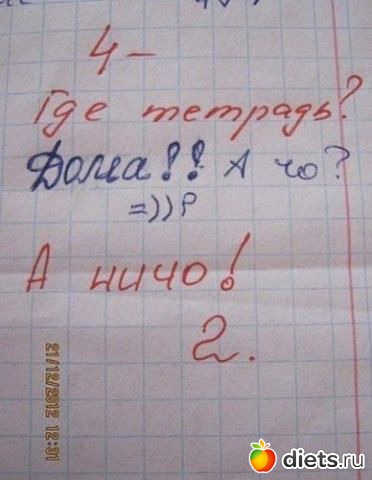 4-
Где тетрадь?
Дома!! А чо?
=))P
А ничо!
2.
21/12/2012 12:31
diets.ru